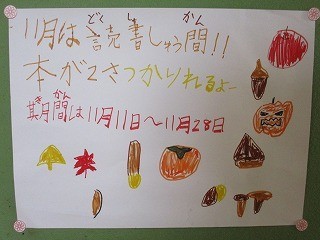 11月は読書しゅう間!!
どくしょかん
本が2さつかりれるよー
きかん
期間は11月11日~11月28日